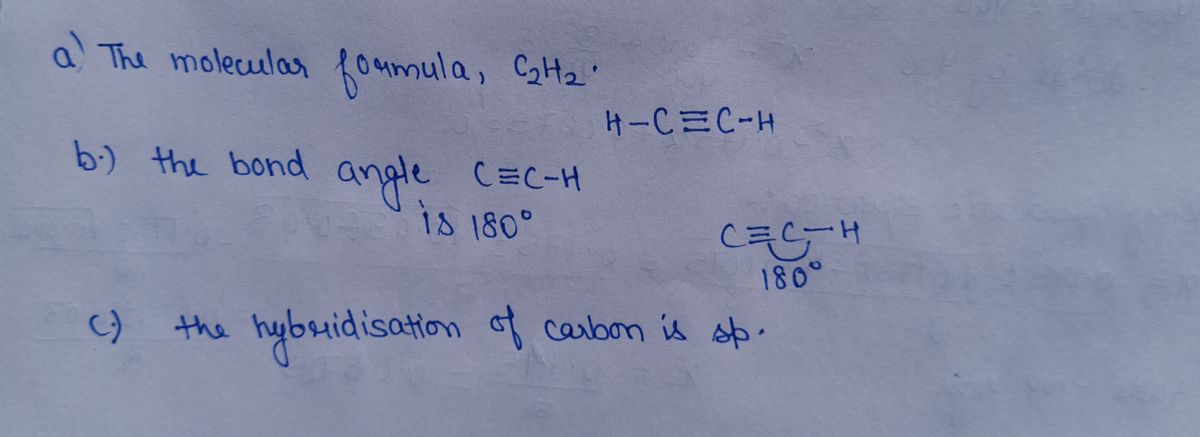 a) The molecular formula, C₂H₂.
H-C≡C-H
b.) the bond angle C≡C-H
is 180°
C≡C-H
180°
c.) the hybridisation of carbon is sp.